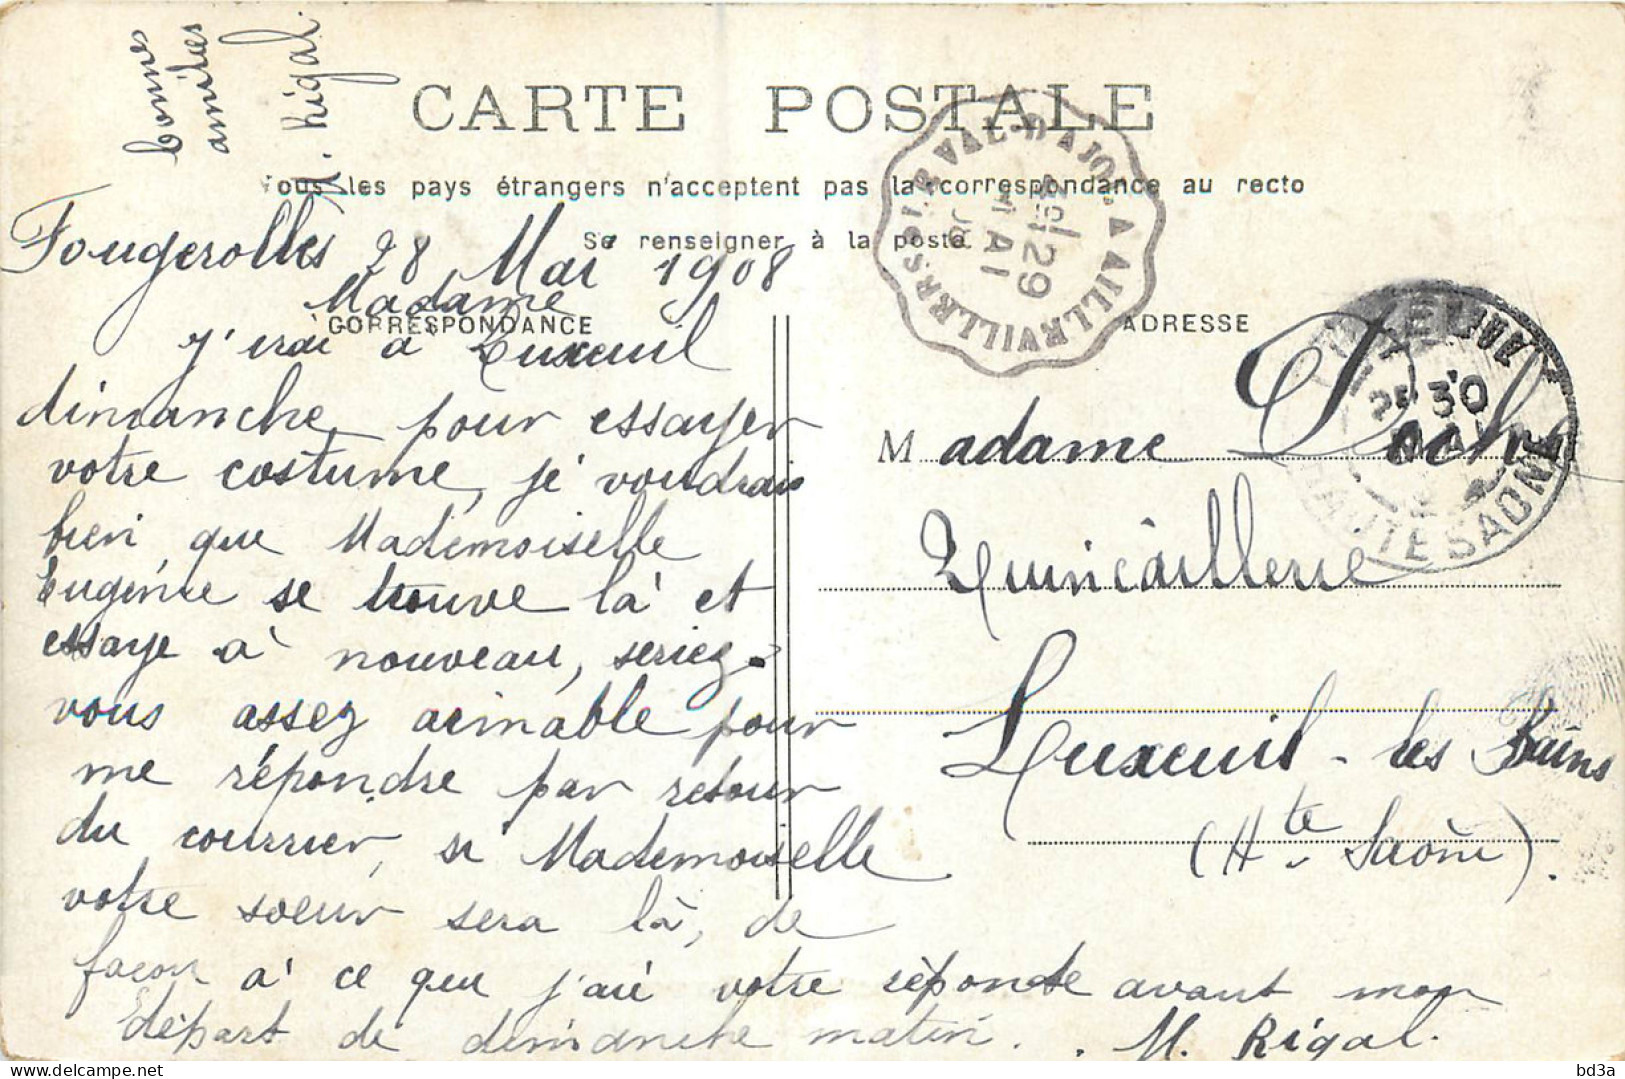 bonnes
amitiés
M. Rigal.
CARTE POSTALE
Tous les pays étrangers n'acceptent pas la correspondance au recto
Se renseigner à la poste.
Fougerolles 28 Mai 1908
CORRESPONDANCE
Madame
J'irai à Luxeuil
dimanche pour essayer
votre costume, je voudrais
bien que Mademoiselle
Eugénie se trouve là et
essaye à nouveau, seriez-
vous assez aimable pour
me répondre par retour
du courrier, si Mademoiselle
votre soeur sera là, de
façon à ce que j'aie votre réponse avant mon
départ de dimanche matin. . M. Rigal.
VAL-D'AJOL A AILLEVILLERS
29
MAI
08
ADRESSE
30
HAUTE SAONE
Madame
Quincaillerie
Luxeuil-les Bains
(Hte Saône).
bd3a